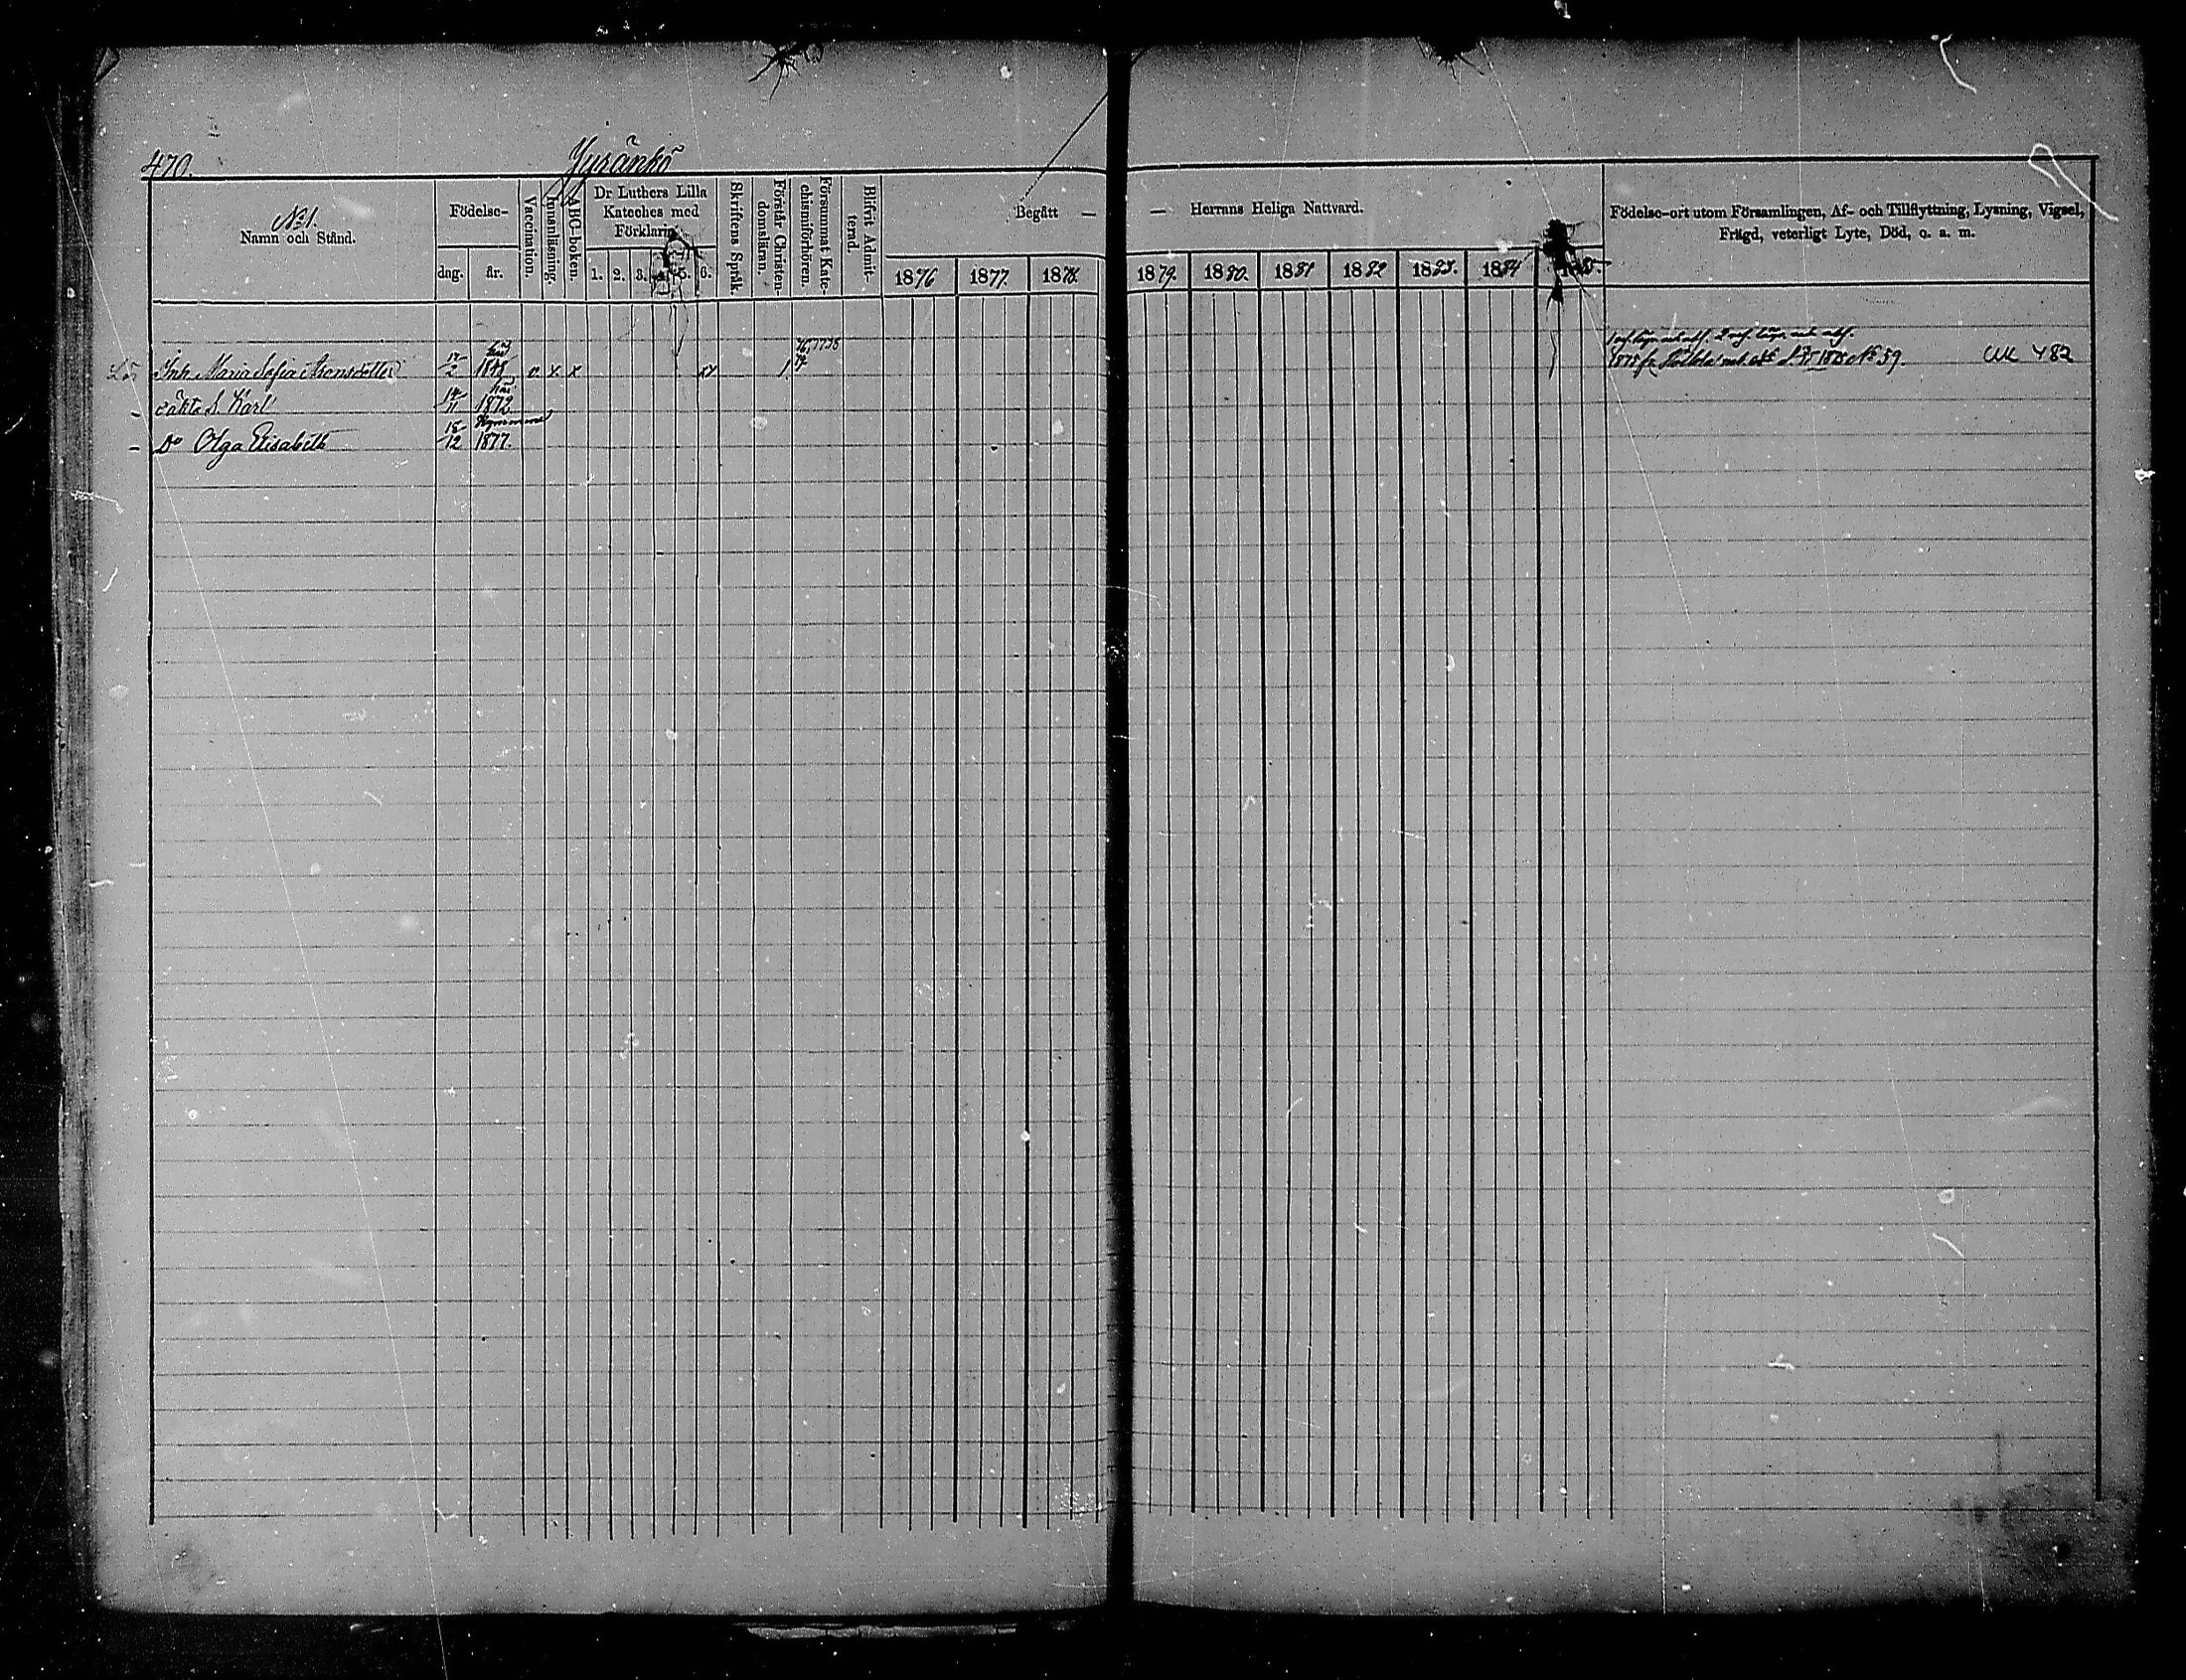 470.
Jyränkö
N:o 1.
Namn och Stånd.
Födelse-
dag. år.
Vaccination.
Innanläsning.
ABC-boken.
Dr Luthers Lilla
Kateches med
Förklaring.
1. 2. 3. 4. 5. 6.
Skriftens Språk.
Förstår Christen-
domsläran.
Försummat Kate-
chismiförhören.
Blifvit Admit-
terad.
Begått — — Herrans Heliga Nattvard.
1876 1877. 1878. 1879. 1880. 1881 1882 1883. 1884 1885.
Födelse-ort utom Församlingen, Af- och Tillflyttning, Lysning, Vigsel,
Frägd, veterligt Lyte, Död, o. a. m.
Inh. Maria Sofia Aronsdotter 17/2 1848 v x x xx 1
1875 fr. 1875 No 59. UK 482
oäkta S. Karl 14/11 1872
Do Olga Elisabeth 18/12 Kymmene 1877.